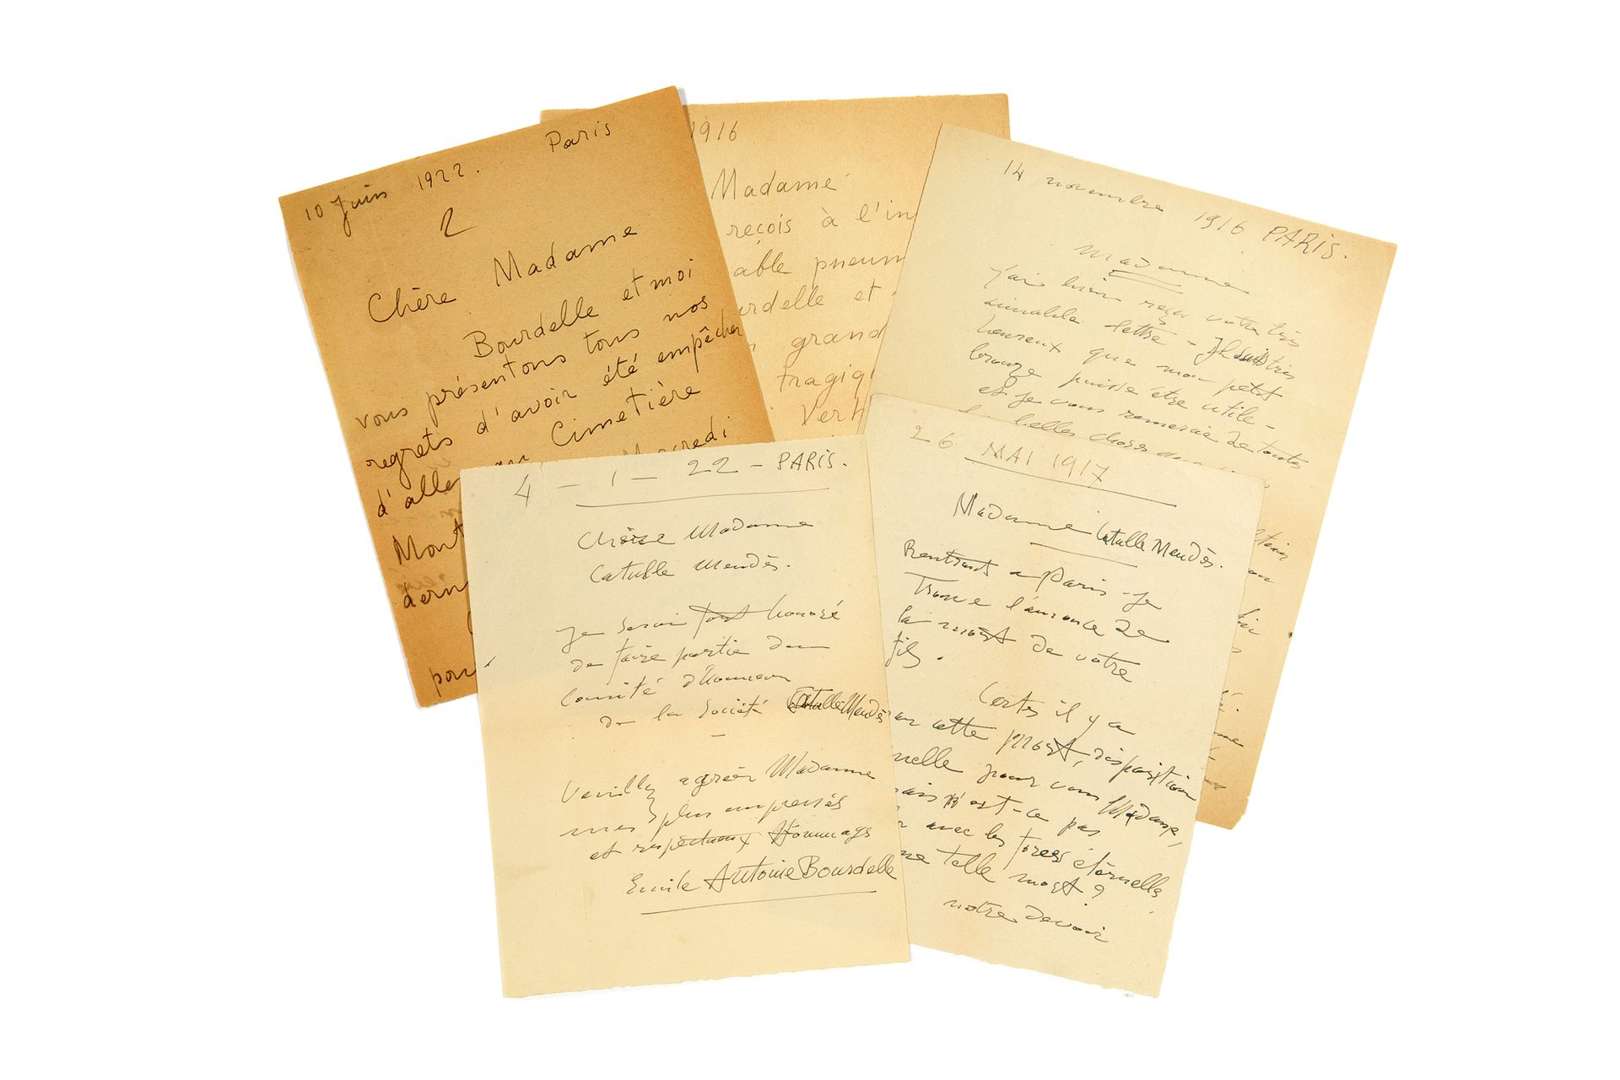 10 Juin 1922. Paris
2
Chère Madame
Bourdelle et moi
vous présentons tous nos
regrets d'avoir été empêcher
d'aller au Cimetière
Mont Mercredi
dern
pou
1916
Madame
reçois à l'in
able pneum
urdelle et
grand
tragiq
Ver
14 novembre 1916 PARIS.
Madame
J'ai bien reçu votre très
aimable lettre - Je suis très
heureux que mon petit
bronze puisse être utile -
et je vous remercie de toutes
belles choses
4 - 1 - 22 - PARIS.
Chère Madame
Catulle Mendès.
Je serai fort honoré
de faire partie du
Comité d'Honneur
de la Société Catulle Mendès
Veuillez agréer Madame
mes plus empressés
et respectueux Hommages
Emile Antoine Bourdelle
26 MAI 1917
Madame Catulle Mendès.
Rentrant a Paris je
Trouve l'annonce de
la mort de votre
fils.
Certes il y a
en cette mort, disposition
nelle pour vous Madame,
ais n'est-ce pas
avec les forces éternelles
ne telle mort ?
notre devoir